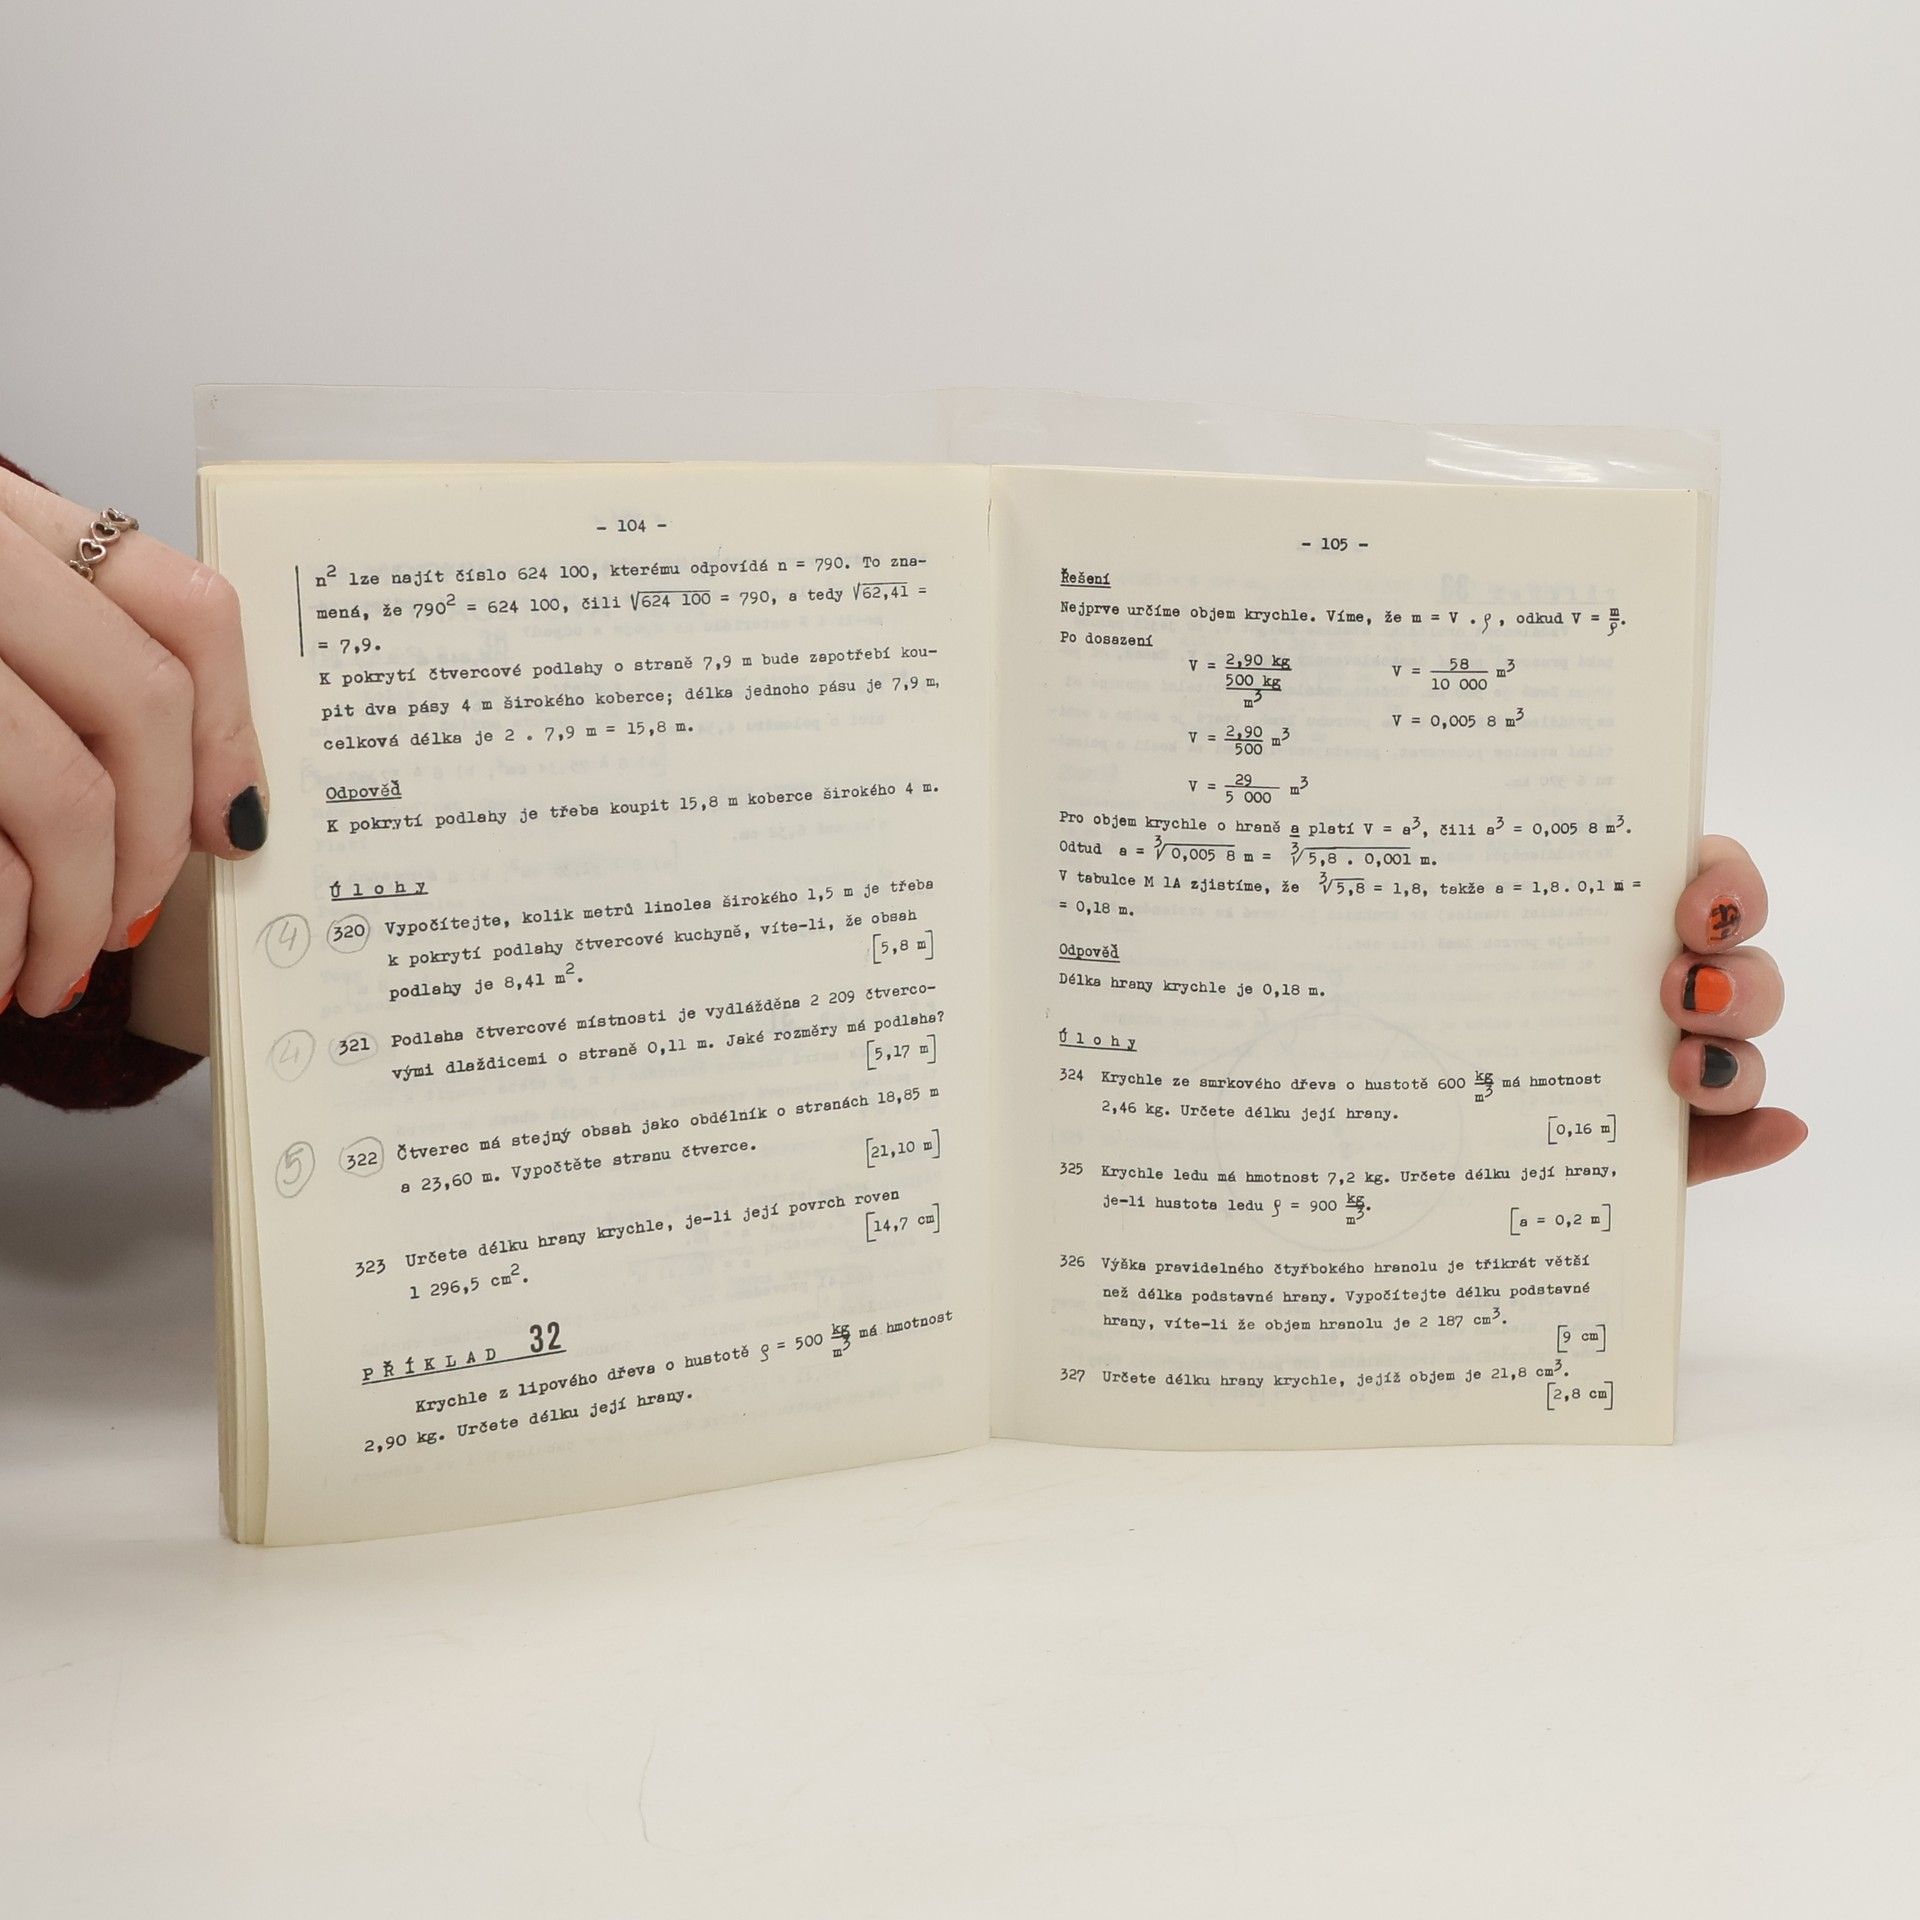 - 104 -
n² lze najít číslo 624 100, kterému odpovídá n = 790. To zna-
mená, že 790² = 624 100, čili √624 100 = 790, a tedy √62,41 =
= 7,9.
K pokrytí čtvercové podlahy o straně 7,9 m bude zapotřebí kou-
pit dva pásy 4 m širokého koberce; délka jednoho pásu je 7,9 m,
celková délka je 2 . 7,9 m = 15,8 m.
Odpověď
K pokrytí podlahy je třeba koupit 15,8 m koberce širokého 4 m.
Úlohy
4 320 Vypočítejte, kolik metrů linolea širokého 1,5 m je třeba
k pokrytí podlahy čtvercové kuchyně, víte-li, že obsah
podlahy je 8,41 m². [5,8 m]
4 321 Podlaha čtvercové místnosti je vydlážděna 2 209 čtverco-
vými dlaždicemi o straně 0,11 m. Jaké rozměry má podlaha?
[5,17 m]
5 322 Čtverec má stejný obsah jako obdélník o stranách 18,85 m
a 23,60 m. Vypočtěte stranu čtverce. [21,10 m]
323 Určete délku hrany krychle, je-li její povrch roven
1 296,5 cm². [14,7 cm]
PŘÍKLAD 32
Krychle z lipového dřeva o hustotě ρ = 500 kg/m³ má hmotnost
2,90 kg. Určete délku její hrany.
- 105 -
Řešení
Nejprve určíme objem krychle. Víme, že m = V . ρ, odkud V = m/ρ.
Po dosazení
V = 2,90 kg / 500 kg/m³
V = 2,90/500 m³
V = 29/5 000 m³
V = 58/10 000 m³
V = 0,005 8 m³
Pro objem krychle o hraně a platí V = a³, čili a³ = 0,005 8 m³.
Odtud a = ³√0,005 8 m = ³√5,8 . 0,001 m.
V tabulce M 1A zjistíme, že ³√5,8 = 1,8, takže a = 1,8 . 0,1 m =
= 0,18 m.
Odpověď
Délka hrany krychle je 0,18 m.
Úlohy
324 Krychle ze smrkového dřeva o hustotě 600 kg/m³ má hmotnost
2,46 kg. Určete délku její hrany.
[0,16 m]
325 Krychle ledu má hmotnost 7,2 kg. Určete délku její hrany,
je-li hustota ledu ρ = 900 kg/m³.
[a = 0,2 m]
326 Výška pravidelného čtyřbokého hranolu je třikrát větší
než délka podstavné hrany. Vypočítejte délku podstavné
hrany, víte-li že objem hranolu je 2 187 cm³.
[9 cm]
327 Určete délku hrany krychle, jejíž objem je 21,8 cm³.
[2,8 cm]